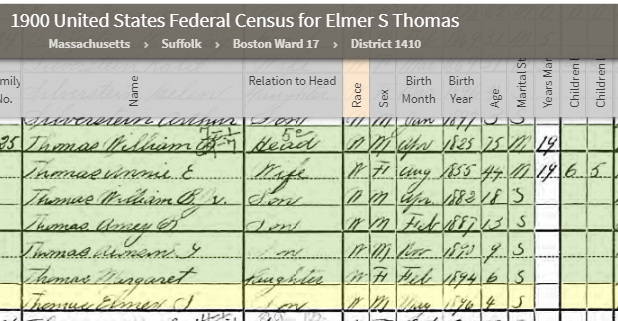 1900 United States Federal Census for Elmer S Thomas
Massachusetts › Suffolk › Boston Ward 17 › District 1410
Family No. Name Relation to Head Race Sex Birth Month Birth Year Age Marital St Years Mar Children Children
Son W M Jan 1897 3 S
35 Thomas William Head W M Apr 1825 75 M 19
Thomas Annie E Wife W F Aug 1855 44 M 19 6 5
Thomas William B Jr. Son W M Apr 1882 18 S
Thomas Son W M Feb 1887 13 S
Thomas Son W M Nov 1890 9 S
Thomas Margaret Daughter W F Feb 1894 6 S
Thomas Elmer S Son W M May 1896 4 S